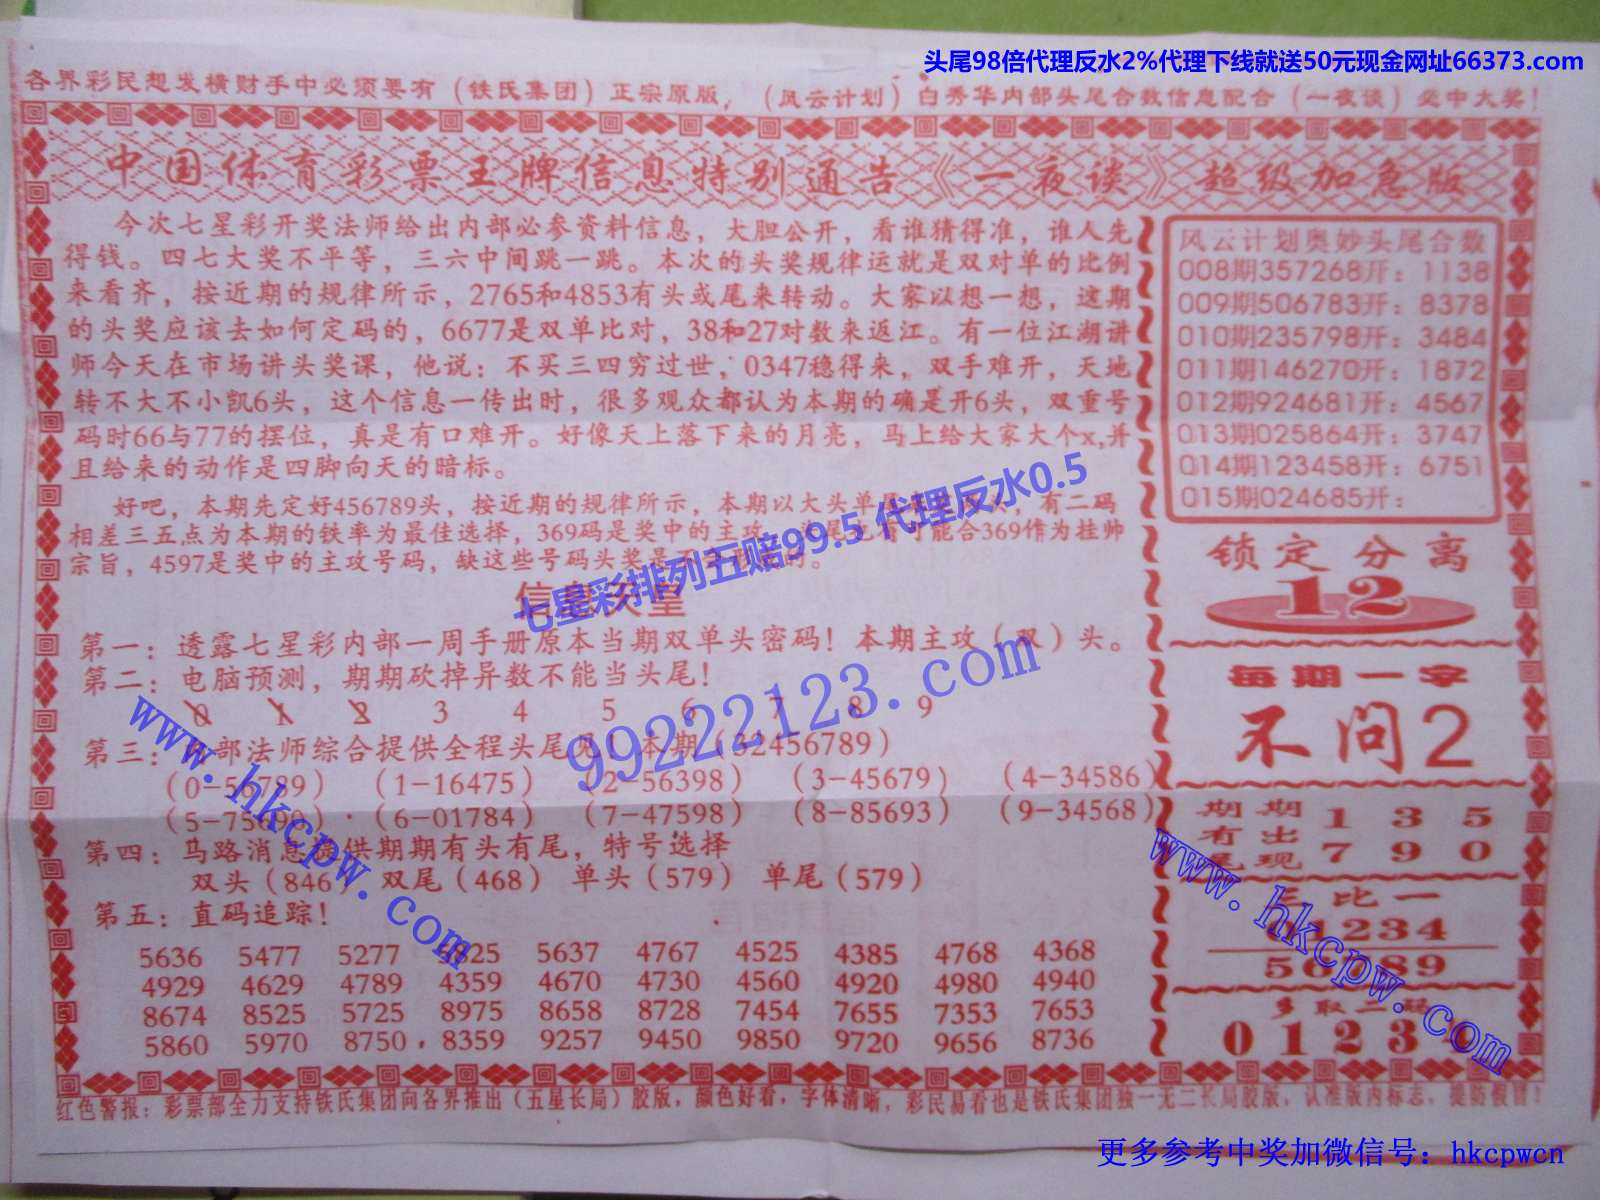 头尾98倍代理反水2%代理下线就送50元现金网址66373.com
各界彩民想发横财手中必须要有（铁氏集团）正宗原版，（风云计划）白秀华内部头尾合数信息配合（一夜谈）必中大奖！
中国体育彩票王牌信息特别通告《一夜谈》超级加急版
今次七星彩开奖法师给出内部必参资料信息，大胆公开，看谁猜得准，谁人先
得钱。四七大奖不平等，三六中间跳一跳。本次的头奖规律运就是双对单的比例
来看齐，按近期的规律所示，2765和4853有头或尾来转动。大家以想一想，这期
的头奖应该去如何定码的，6677是双单比对，38和27对数来返江。有一位江湖讲
师今天在市场讲头奖课，他说：不买三四穷过世，0347稳得来，双手难开，天地
转不大不小凯6头，这个信息一传出时，很多观众都认为本期的确是开6头，双重号
码时66与77的摆位，真是有口难开。好像天上落下来的月亮，马上给大家大个x,并
且给来的动作是四脚向天的暗标。
好吧，本期先定好456789头，按近期的规律所示，本期以大头单尾 有二码
相差三五点为本期的铁率为最佳选择，369码是奖中的主攻 能合369作为挂帅
宗旨，4597是奖中的主攻号码，缺这些号码头奖是 的。
七星彩排列五赔99.5 代理反水0.5
信息 皇
第一：透露七星彩内部一周手册原本当期双单头密码！本期主攻（双）头。
第二：电脑预测，期期砍掉异数不能当头尾！
0 1 2 3 4 5 6 7 8 9
99222123.com
第三： 部法师综合提供全程头尾见！本期（32456789）
（0-56789） （1-16475） （2-56398） （3-45679） （4-34586）
（5-75690） （6-01784） （7-47598） （8-85693） （9-34568）
第四：马路消息提供期期有头有尾，特号选择
双头（846） 双尾（468） 单头（579） 单尾（579）
第五：直码追踪！
5636 5477 5277 4825 5637 4767 4525 4385 4768 4368
4929 4629 4789 4359 4670 4730 4560 4920 4980 4940
8674 8525 5725 8975 8658 8728 7454 7655 7353 7653
5860 5970 8750 8359 9257 9450 9850 9720 9656 8736
www.hkcpw.com
风云计划奥妙头尾合数
008期357268开：1138
009期506783开：8378
010期235798开：3484
011期146270开：1872
012期924681开：4567
013期025864开：3747
014期123458开：6751
015期024685开：
锁定分离
12
每期一字
不问2
期期 1 3 5
有出
尾现 7 9 0
三比一
01234
56789
多取一码
0 1 2 3 4
www.hkcpw.com
红色警报：彩票部全力支持铁氏集团向各界推出（五星长局）胶版，颜色好看，字体清晰，彩民易看也是铁氏集团独一无二长局胶版，认准版内标志，提防假冒！
更多参考中奖加微信号：hkcpwcn